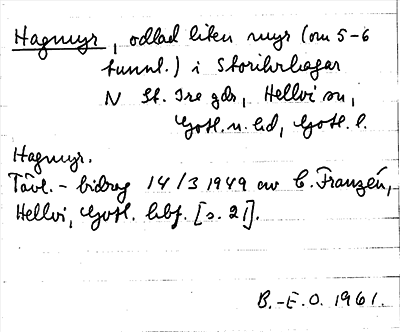 Hagmyr, odlad liten myr (om 5-6
tunnl.) i Storihrhagar
N St. Ire gdr, Hellvi sn,
Gotl. n. hd, Gotl. l.
Hagmyr.
Tävl.-bidrag 14/3 1949 av C. Franzén,
Hellvi, Gotl. hbf. [s. 21].
B.-E.O. 1961.